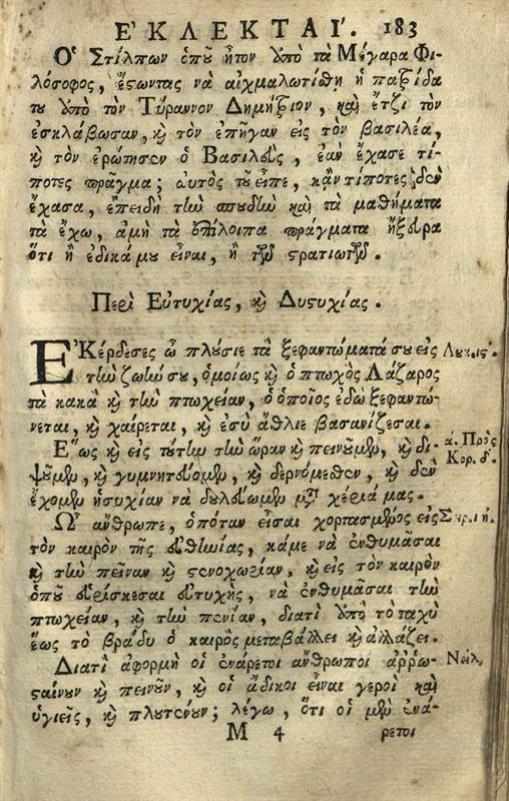 ἘΚΛΕΚΤΑΊ. 183
Ὁ Στίλπων ὁποῦ ἦτον ἀπὸ τὰ Μέγαρα Φι-
λόσοφος, ἔστωντας νὰ αἰχμαλωτίσθη ἡ πατρίδα
του ἀπὸ τὸν Τύραννον Δημήτριον, καὶ ἔτζι τὸν
ἐσκλάβωσαν, καὶ τὸν ἐπῆγαν εἰς τὸν βασιλέα,
καὶ τὸν ἐρώτησεν ὁ Βασιλεὺς, ἐὰν ἔχασε τί-
ποτες πρᾶγμα; αὐτὸς τοῦ εἶπε, κᾂν τίποτες δὲν
ἔχασα, ἐπειδὴ τὴν σπουδὴν καὶ τὰ μαθήματα
τὰ ἔχω, ἀμὴ τὰ ἐπίλοιπα πράγματα ἤξευρα
ὅτι ἢ ἐδικά μου εἶναι, ἢ τῶν στρατιωτῶν.
Περὶ Εὐτυχίας, καὶ Δυστυχίας.
ἘΚέρδεσες ὦ πλούσιε τὰ ξεφαντώματά σου εἰς Λουκ. ις΄.
τὴν ζωήν σου, ὁμοίως καὶ ὁ πτωχὸς Λάζαρος
τὰ κακὰ καὶ τὴν πτωχείαν, ὁ ὁποῖος ἐδῶ ξεφαντώ-
νεται, καὶ χαίρεται, καὶ ἐσὺ ἄθλιε βασανίζεσαι.
Ἕως καὶ εἰς τούτην τὴν ὥραν καὶ πεινοῦμεν, καὶ δι- ά. Πρὸς
ψοῦμεν, καὶ γυμνητεύομεν, καὶ δερνόμεθεν, καὶ δὲν Κορ. δ΄.
ἔχομεν ἡσυχίαν νὰ δουλεύωμεν μὲ τὰ χέριά μας.
Ὦ ἄνθρωπε, ὁπόταν εἶσαι χορτασμένος εἰς Σιρὰχ ιή.
τὸν καιρὸν τῆς εὐθηνίας, κάμε νὰ ἐνθυμᾶσαι
καὶ τὴν πεῖναν καὶ στενοχωρίαν, καὶ εἰς τὸν καιρὸν
ὁποῦ εὑρίσκεσαι εὐτυχὴς, νὰ ἐνθυμᾶσαι τὴν
πτωχείαν, καὶ τὴν πενίαν, διατὶ ἀπὸ τὸ ταχὺ
ἕως τὸ βράδυ ὁ καιρὸς μεταβάλλει καὶ ἀλλάζει.
Διατὶ ἀφορμὴ οἱ ἐνάρετοι ἄνθρωποι ἀῤῥω- Νείλ,
σταίνουν καὶ πεινοῦν, καὶ οἱ ἄδικοι εἶναι γεροὶ καὶ
ὑγιεῖς, καὶ πλουτένουν; λέγω, ὅτι οἱ μὲν ἐνά-
Μ 4 ρετοι